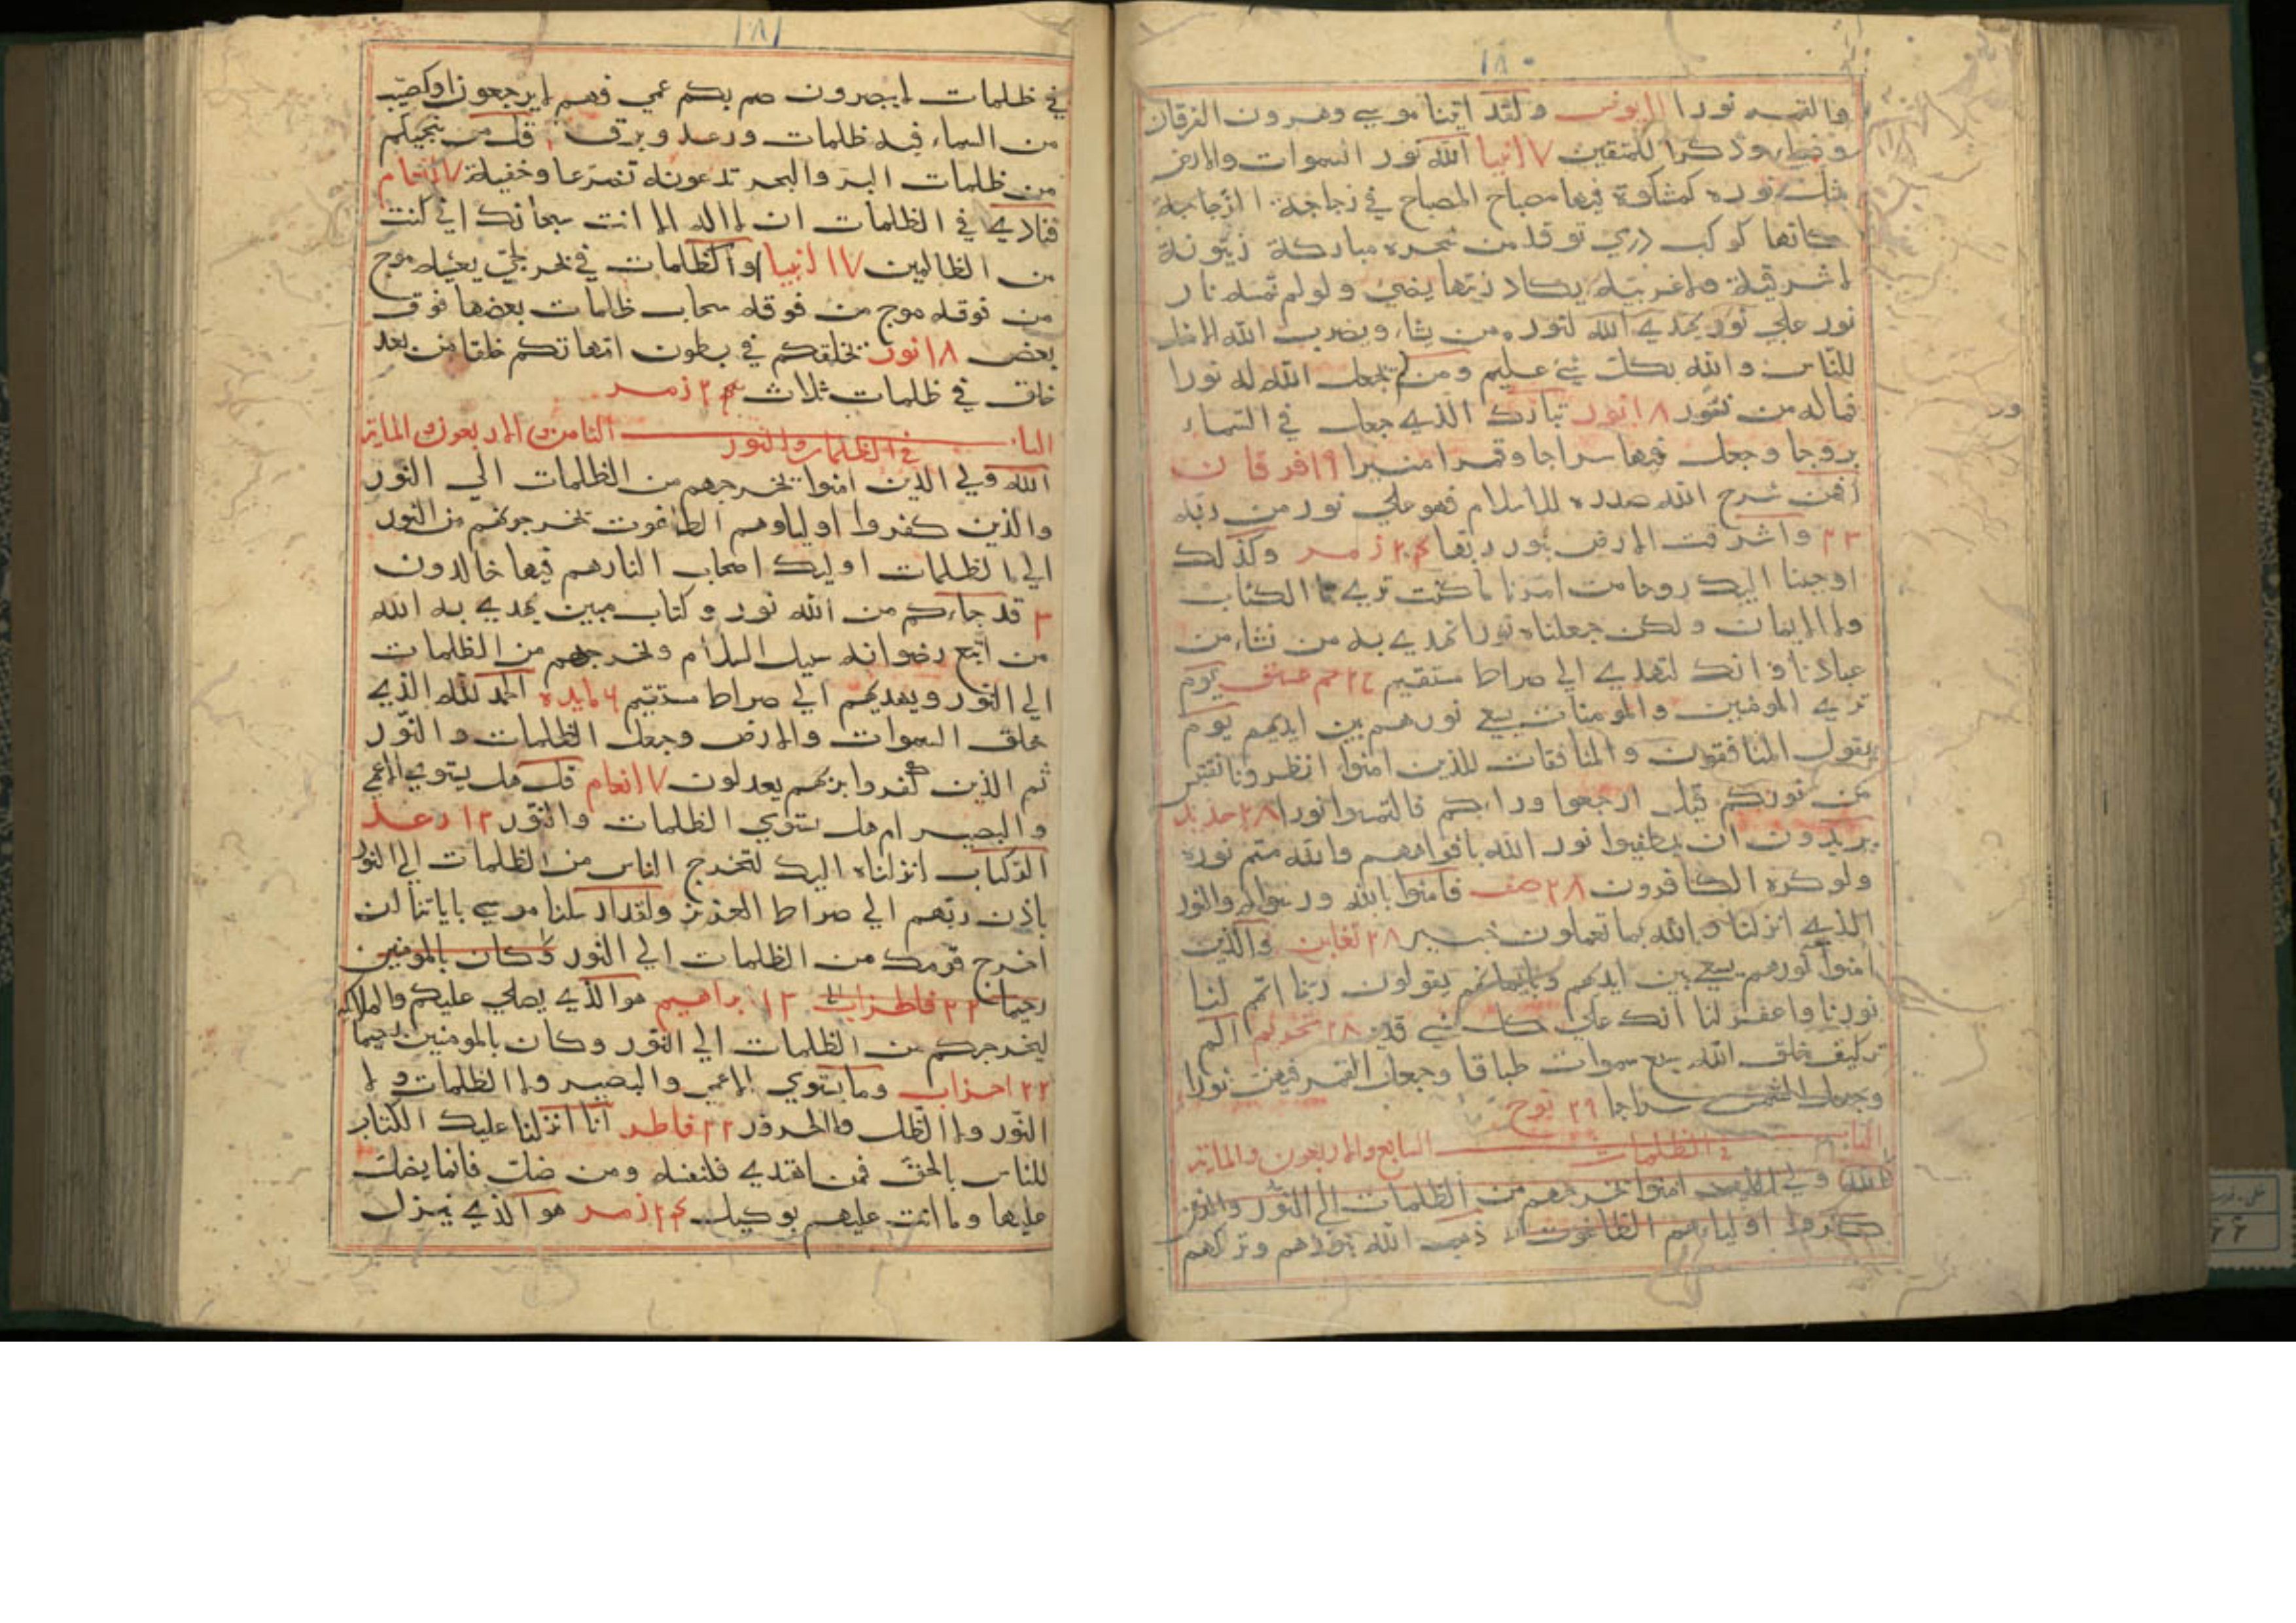 ١٨٠
والقمر نورا ١١ يونس ولقد اتينا موسي وهرون الفرقان
وضياء وذكرا للمتقين ١٧ انبيا الله نور السموات والارض
مثل نوره كمشكوة فيها مصباح المصباح في زجاجة الزجاجة
كانها كوكب دري توقد من شجره مباركة زيتونة
لا شرقية ولا غربية يكاد زيتها يضي ولو لم تمسه نار
نور علي نور يهدي الله لنوره من يشاء ويضرب الله الامثال
للناس والله بكل شي عليم ومن لم يجعل الله له نورا
فماله من نور ١٨ نور تبارك الذي جعل في السماء
بروجا وجعل فيها سراجا وقمرا منيرا ١٩ فرقان
افمن شرح الله صدره للاسلام فهو علي نور من ربه
٢٣ واشرقت الارض بنور ربها ٢٤ زمر وكذلك
اوحينا اليك روحا من امرنا ما كنت تدري ما الكتاب
ولا الايمان ولكن جعلناه نورا نهدي به من نشاء من
عبادنا وانك لتهدي الي صراط مستقيم ٢٤ حم عسق يوم
تري المومنين والمومنات يسعي نورهم بين ايديهم يوم
يقول المنافقون والمنافقات للذين امنوا انظرونا نقتبس
من نوركم قيل ارجعوا وراءكم فالتمسوا نورا ٢٨ حديد
يريدون ان يطفيوا نور الله بافواههم والله متم نوره
ولو كره الكافرون ٢٨ صف فامنوا بالله ورسوله والنور
الذي انزلنا والله بما تعملون خبير ٢٨ تغابن والذين
امنوا نورهم يسعي بين ايديهم وبايمانهم يقولون ربنا اتمم لنا
نورنا واغفر لنا انك علي كل شي قدير ٢٨ تحريم الم
تر كيف خلق الله سبع سموات طباقا وجعل القمر فيهن نورا
وجعل الشمس سراجا ٢٩ نوح
الباب السابع والاربعون والماية في الظلمات
الله ولي الذين امنوا يخرجهم من الظلمات الي النور والذين
كفروا اولياءهم الطاغوت ذهب الله بنورهم وتركهم
ور
١٨١
في ظلمات لا يبصرون صم بكم عمي فهم لا يرجعون او كصيب
من السماء فيه ظلمات ورعد وبرق ١ قل من ينجيكم
من ظلمات البر والبحر تدعونه تضرعا وخفية ٧ انعام
فنادي في الظلمات ان لا اله الا انت سبحانك اني كنت
من الظالمين ١٧ انبيا او كظلمات في بحر لجي يغشيه موج
من فوقه موج من فوقه سحاب ظلمات بعضها فوق
بعض ١٨ نور يخلقكم في بطون امهاتكم خلقا من بعد
خلق في ظلمات ثلاث ٢٤ زمر
الباب الثامن والاربعون والماية في الظلمات والنور
الله ولي الذين امنوا يخرجهم من الظلمات الي النور
والذين كفروا اولياوهم الطاغوت يخرجونهم من النور
الي الظلمات اوليك اصحاب النار هم فيها خالدون
٣ قد جاءكم من الله نور وكتاب مبين يهدي به الله
من اتبع رضوانه سبل السلام ويخرجهم من الظلمات
الي النور ويهديهم الي صراط مستقيم ٦ مايده الحمد لله الذي
خلق السموات والارض وجعل الظلمات والنور
ثم الذين كفروا بربهم يعدلون ٧ انعام قل هل يستوي الاعمي
والبصير ام هل تستوي الظلمات والنور ١٣ رعد
الر كتاب انزلناه اليك لتخرج الناس من الظلمات الي النور
باذن ربهم الي صراط العزيز ولقد ارسلنا موسي باياتنا ان
اخرج قومك من الظلمات الي النور وكان بالمومنين
رحيما ١٣ ابراهيم هو الذي يصلي عليكم والملايكه
ليخرجكم من الظلمات الي النور وكان بالمومنين رحيما
٢٢ احزاب وما يستوي الاعمي والبصير ولا الظلمات ولا
النور ولا الظل ولا الحرور ٢٢ فاطر انا انزلنا عليك الكتاب
للناس بالحق فمن اهتدي فلنفسه ومن ضل فانما يضل
عليها وما انت عليهم بوكيل ٢٤ زمر هو الذي ينزل